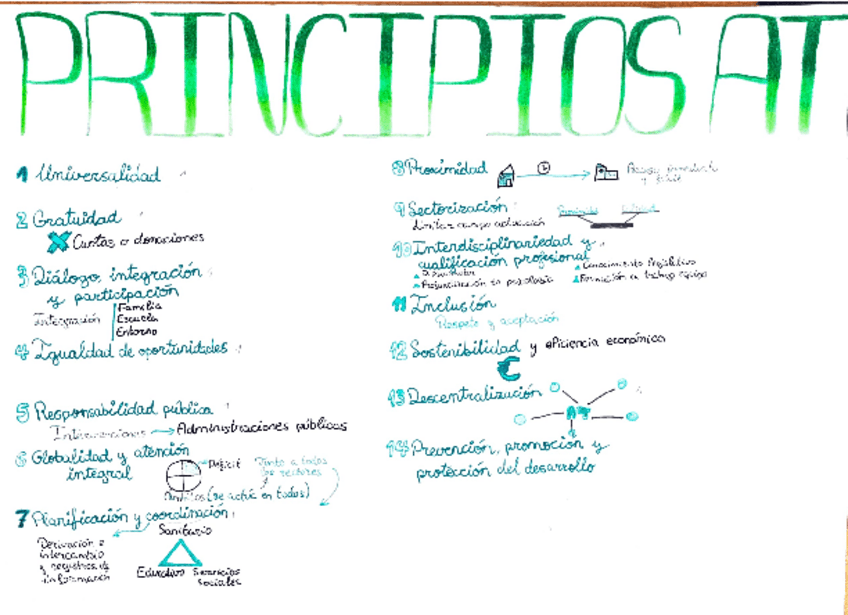 PRINCIPIOS AT
1 Universalidad
2 Gratuidad
X Cuotas o donaciones
3 Diálogo, integración
y participación
Integración
Familia
Escuela
Entorno
4 Igualdad de oportunidades
5 Responsabilidad pública
Intervenciones → Administraciones públicas
6 Globalidad y atención
integral
Déficit
Junto a todos
los sectores
(se actúa en todos)
7 Planificación y coordinación
Derivación e
intercambio
y registros de
información
Sanitario
Educativo
Servicios
sociales
8 Proximidad
9 Sectorización
Limitar campo actuación
10 Interdisciplinariedad y
cualificación profesional
Formación en trabajo equipo
11 Inclusión
Respeto y aceptación
12 Sostenibilidad y eficiencia económica
€
13 Descentralización
14 Prevención, promoción y
protección del desarrollo